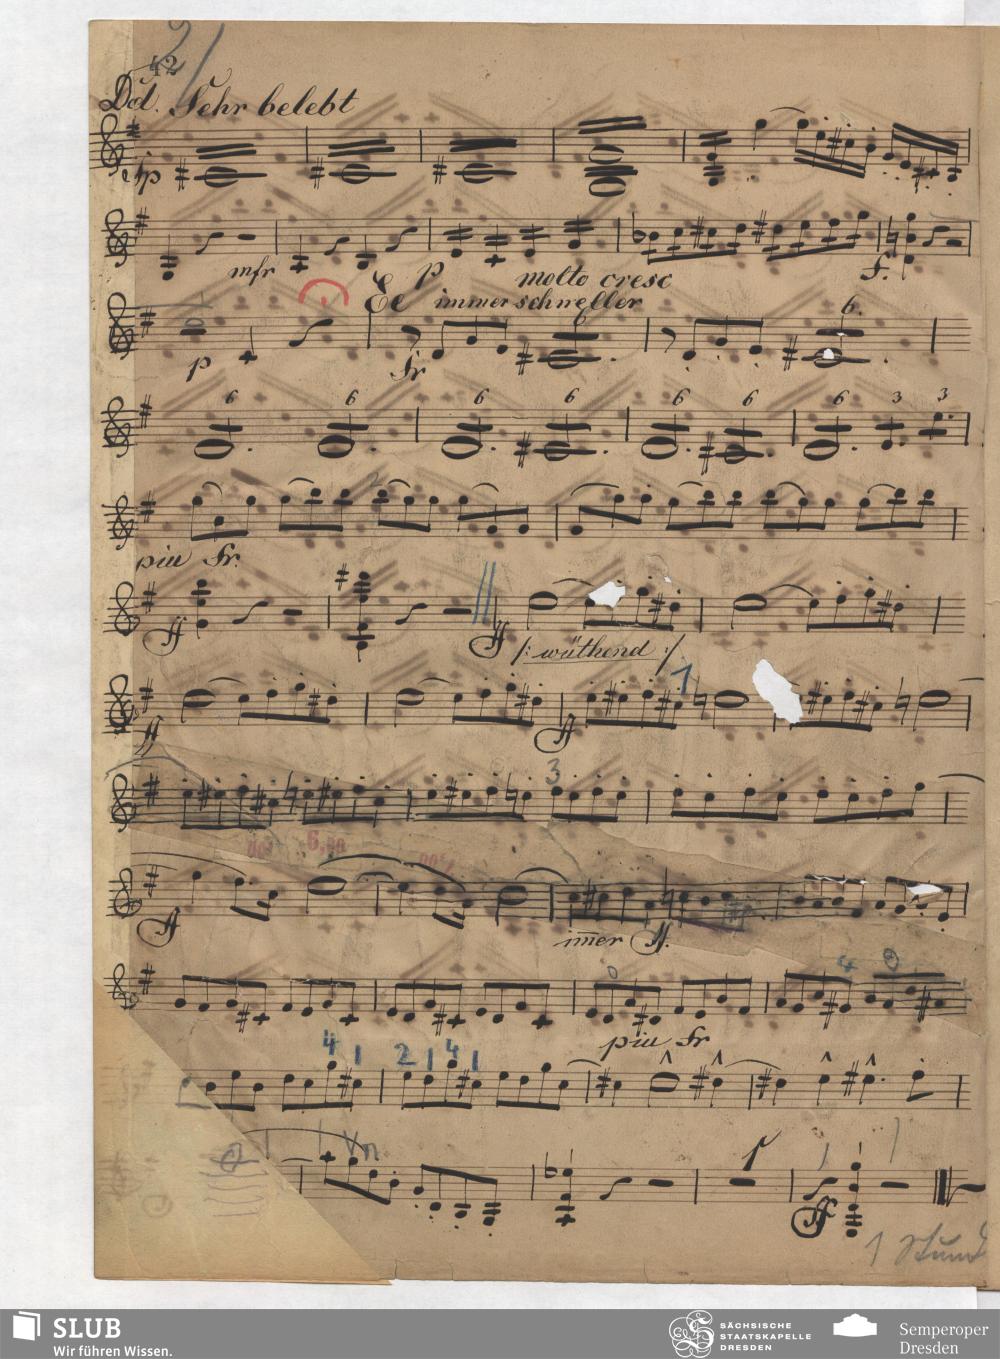 42
Dd. Sehr belebt
fp
mfr p molto cresc f.
Ee immer schneller
6 6.
p fr
6 6 6 6 6 6 6 3 3
2
piu fr.
ff ff /: wüthend :/
1
ff ff
3
6,
ff immer ff.
0 4
piu fr
4 1 2 1 4 1
ff
1 Stund
SLUB
Wir führen Wissen.
SÄCHSISCHE
STAATSKAPELLE
DRESDEN
Semperoper
Dresden